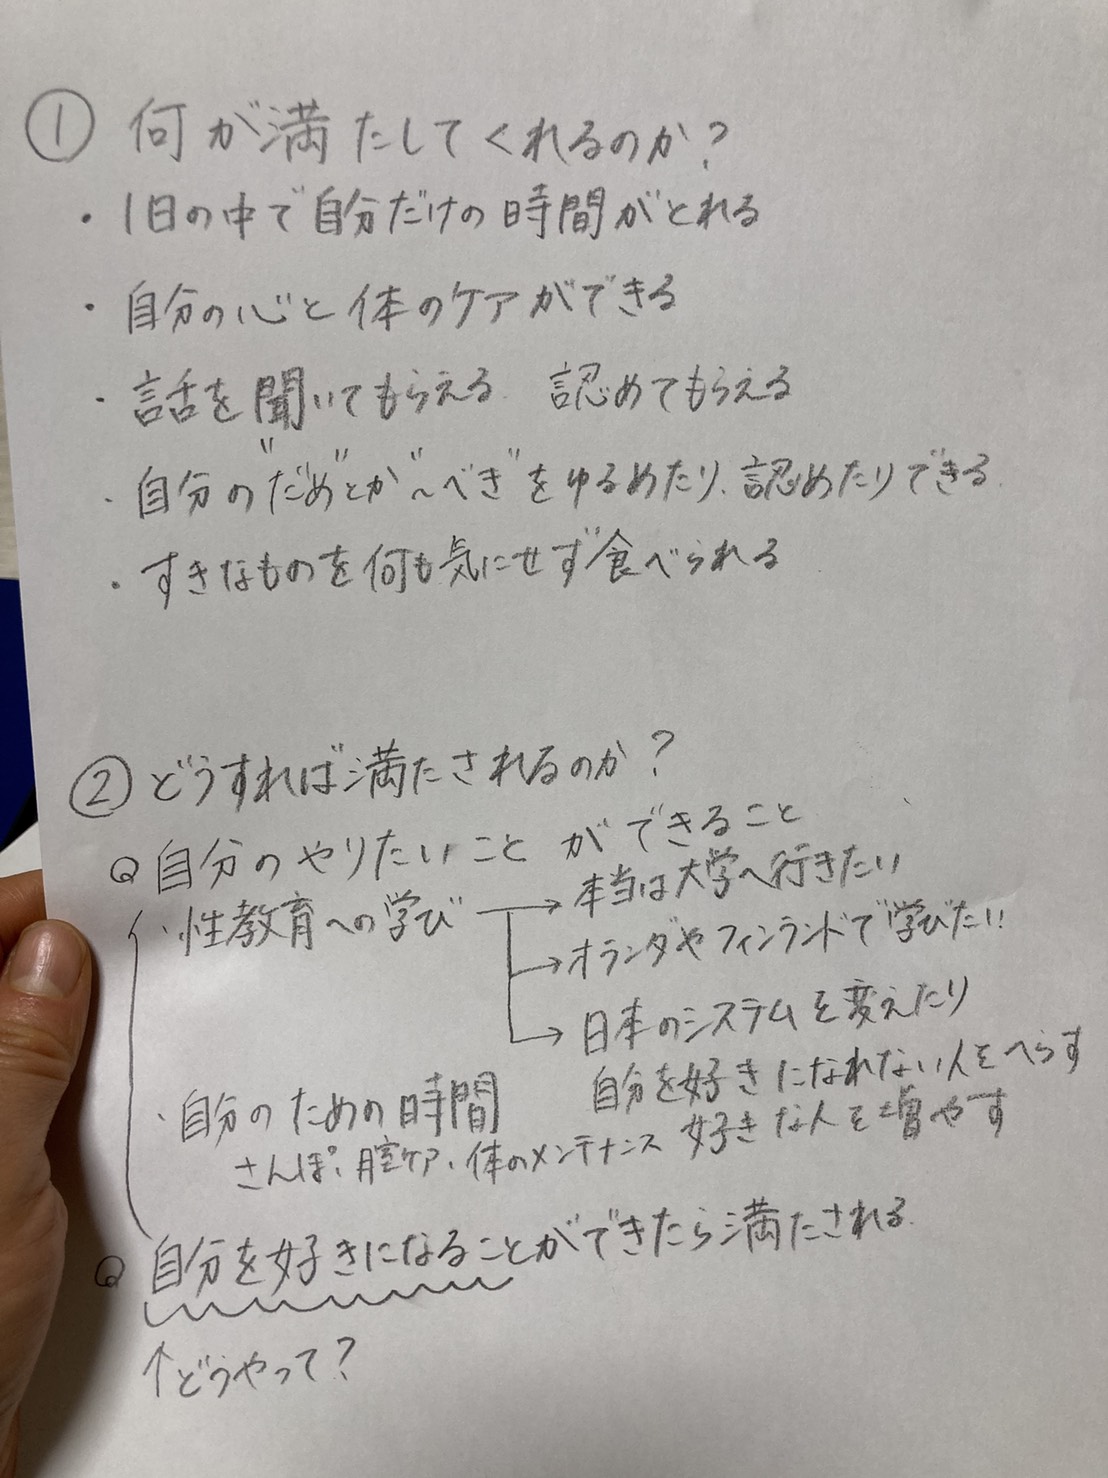 ① 何が満たしてくれるのか?
・1日の中で自分だけの時間がとれる
・自分の心と体のケアができる
・話を聞いてもらえる 認めてもらえる
・自分の"だめ"とか"〜べき"をゆるめたり、認めたりできる
・すきなものを何も気にせず食べられる
② どうすれば満たされるのか?
Q 自分のやりたいことができること
・性教育への学び → 本当は大学へ行きたい
→ オランダやフィンランドで学びたい!!
→ 日本のシステムを変えたり
自分を好きになれない人をへらす
好きな人を増やす
・自分のための時間
さんぽ、膣ケア、体のメンテナンス
Q 自分を好きになることができたら満たされる
↑どうやって?